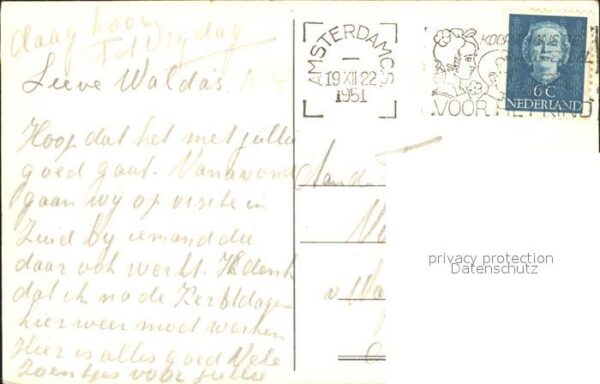 daag hoor
Tot Vrijdag
Lieve Waldas
Hoop dat het met jullie
goed gaat. Vanavond
gaan wij op visite in
Zuid bij iemand die
daar ook werkt. Ik denk
dat ik na de Kerstdagen
hier weer moet werken
Hier is alles goed Vele
Zoentjes voor jullie
AMSTERDAM CS
19 XII 22
1951
VOOR HET KIND
6 C
NEDERLAND
Aan de
v.
privacy protection
Datenschutz